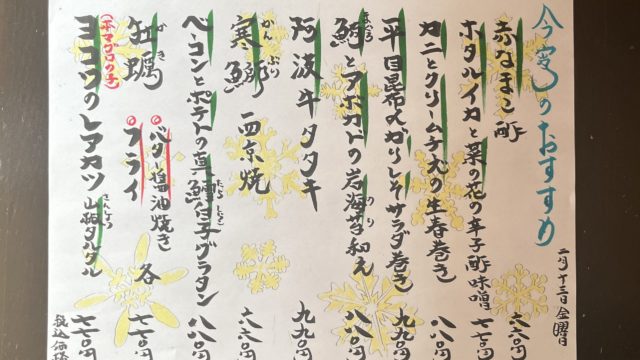 今宵のおすすめ
二月十三日 金曜日
赤なまこ酢 六六〇円
ホタルイカと菜の花の辛子酢味噌 七七〇円
カニとクリームチーズの生春巻き 八八〇円
平目昆布〆がりしそサラダ巻き 九九〇円
鮪とアボカドの岩海苔和え 八八〇円
まぐろ
のり
阿波牛タタキ 九九〇円
寒鰤西京焼 六六〇円
かんぶり
ベーコンとポテトの真鱈白子グラタン 八八〇円
牡蠣
かき
バター醤油焼き
フライ
各 七七〇円
ヨコワのレアカツ 山椒タルタル 七七〇円
(本マグロの子)
さんしょう
税込価格